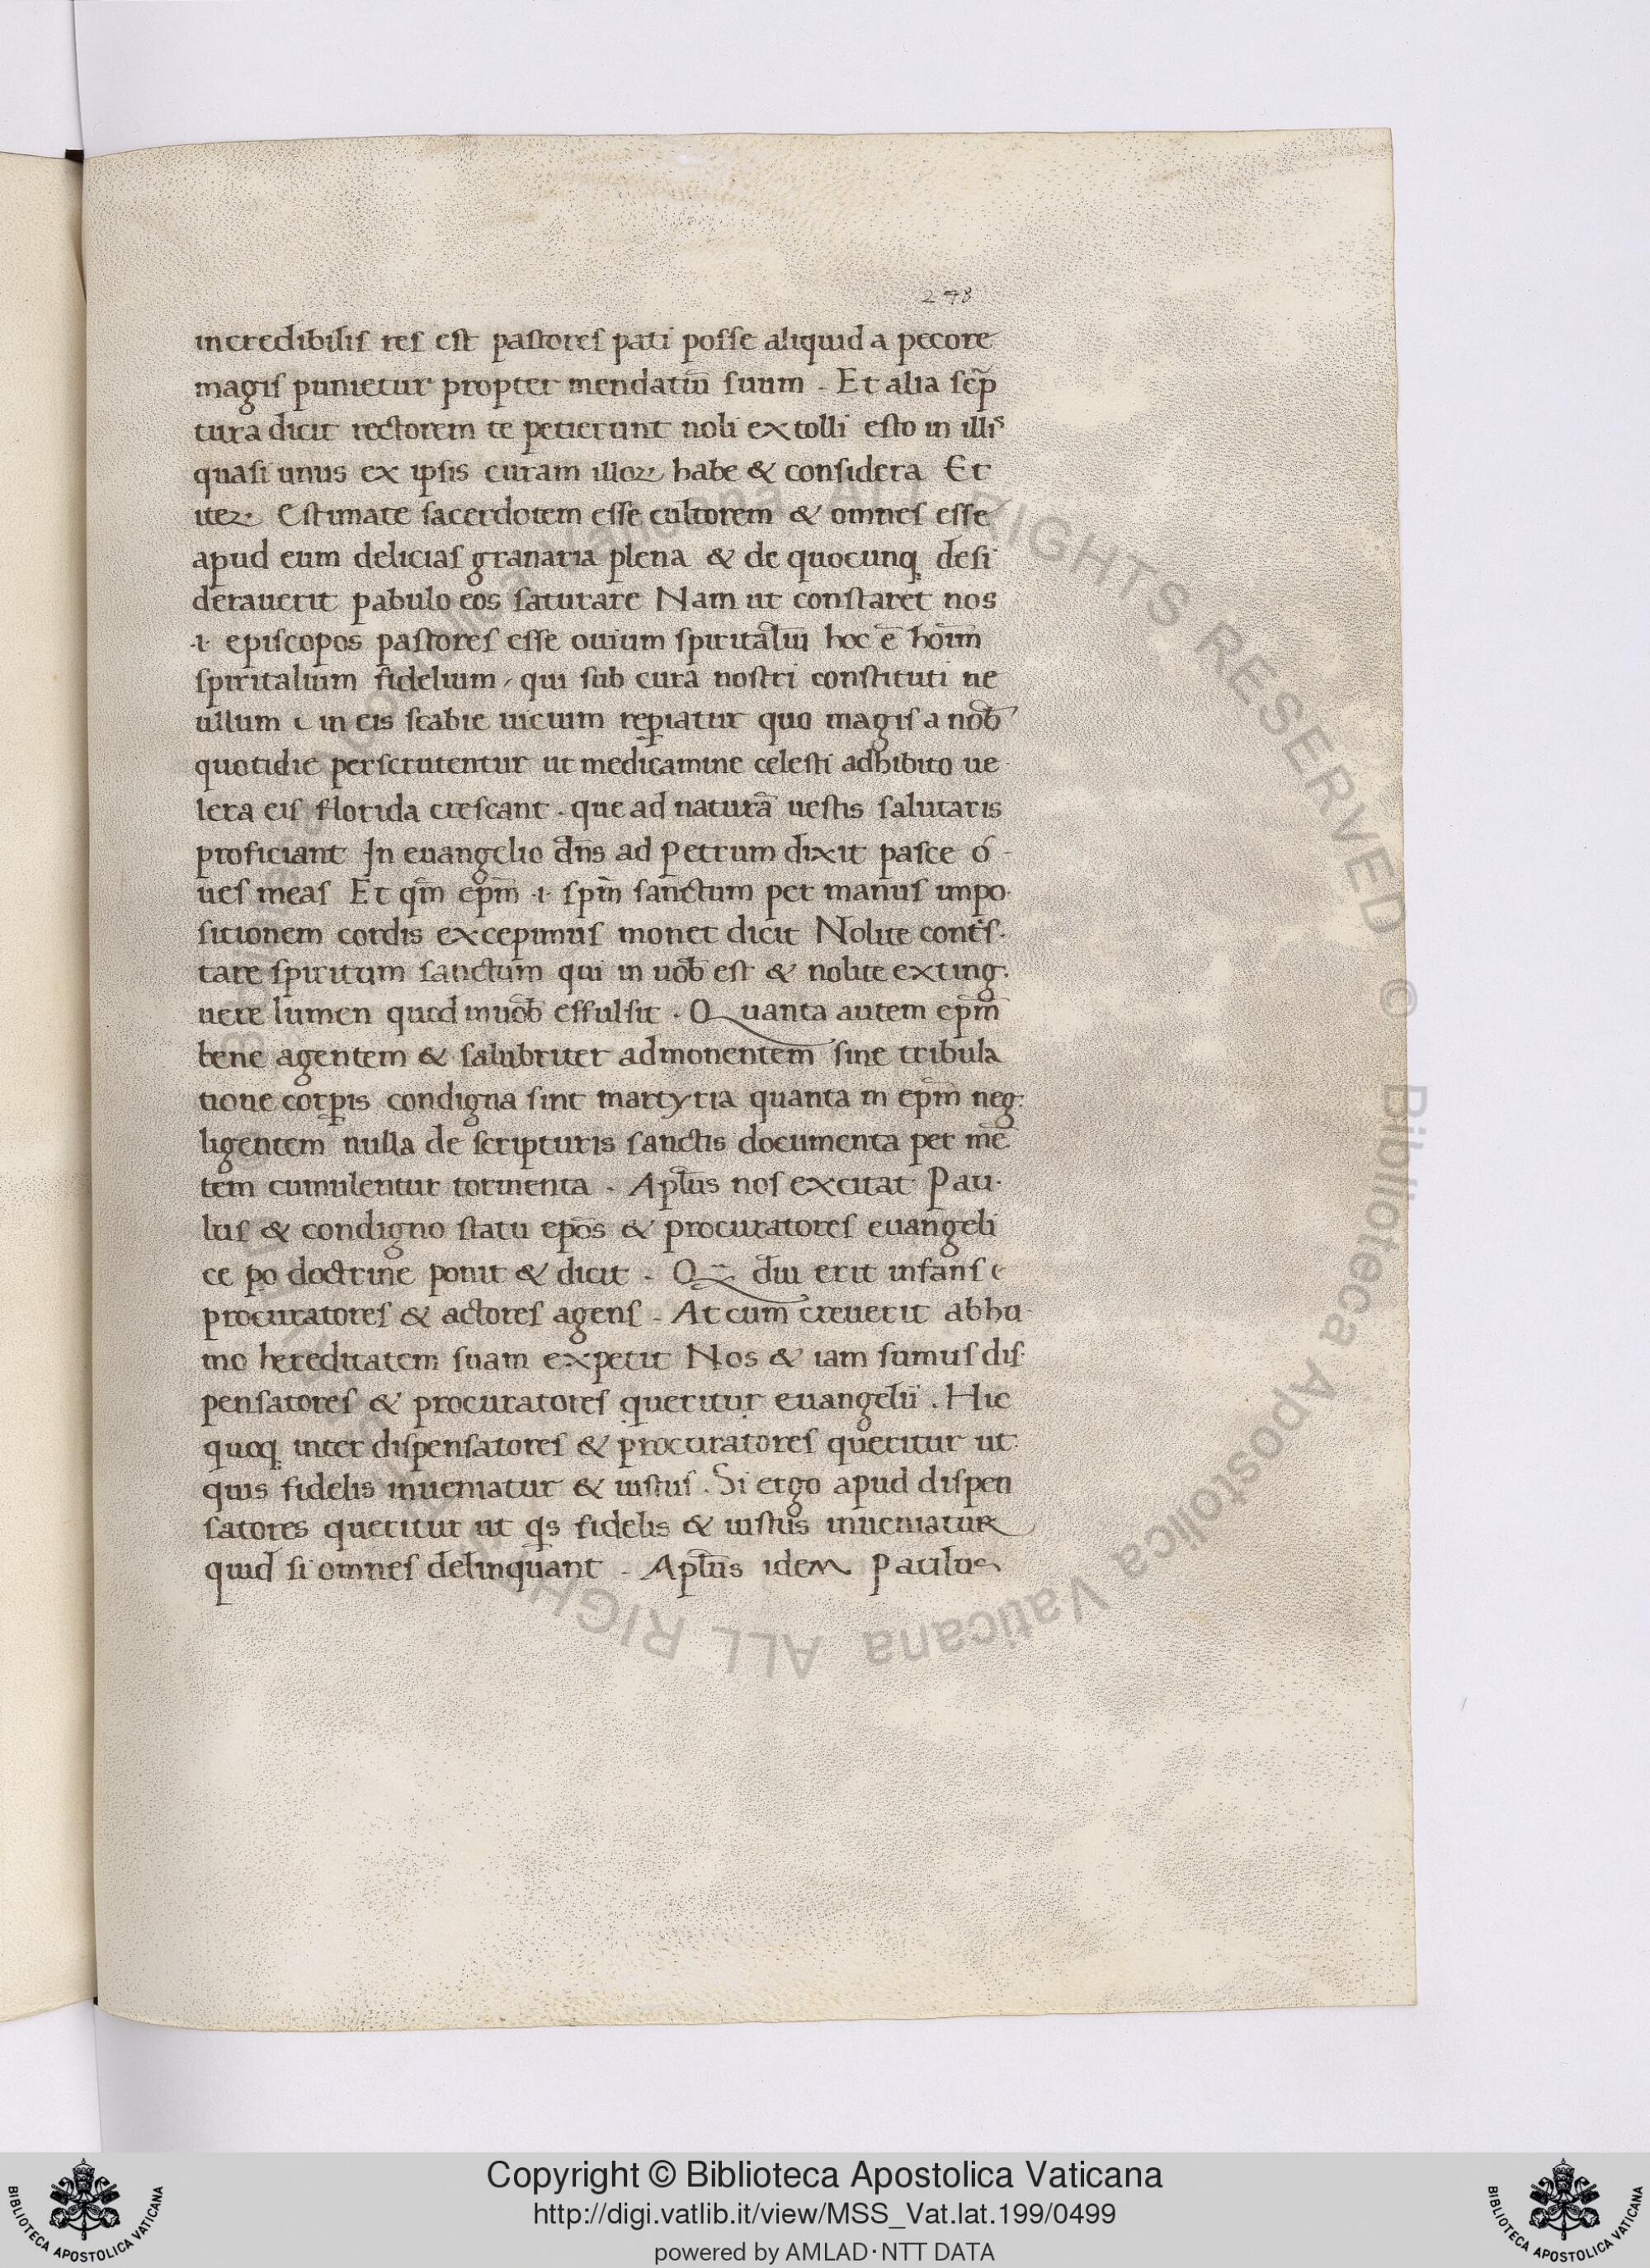 248
incredibilis res est pastores pati posse aliquid a pecore
magis punietur propter mendatiū suum . Et alia scp̄
tura dicit rectorem te petierunt noli extolli esto in illis
quasi unus ex ipsis curam illoꝝ habe & considera Et
iteꝝ. Estimate sacerdotem esse cultorem & omnes esse
apud eum delicias granaria plena & de quocunq; desi
derauerit pabulo eos saturare Nam ut constaret nos
.i. episcopos pastores esse ouium spiritaliū hoc ē hoīm
spiritalium fidelium, qui sub cura nostri constituti ne
ullum in eis scabie uicium reꝑiatur quo magis a nob̄
quotidie perscrutentur ut medicamine celesti adhibito ue
lera eis florida crescant . que ad naturā uestis salutaris
proficiant In euangelio dn̄s ad Petrum dixit pasce o
ues meas Et qm̄ epm̄ .i. spm̄ sanctum per manus impo
sitionem cordis excepimus monet dicit Nolite contris
tare spiritum sanctum qui in uob̄ est & nolite exting
uere lumen quod in uob̄ effulsit . Quanta autem epm̄
bene agentem & salubriter admonentem sine tribula
tione corꝑis condigna sint martyria quanta in epm̄ neg
ligentem nulla de scripturis sanctis documenta per mē
tem cumulentur tormenta . Apl̄us nos excitat Pau
lus & condigno statu epōs & procuratores euangeli
ce po doctrine ponit & dicit . Q diu erit infans
procuratores & actores agens . At cum creuerit ab hu
mo hereditatem suam expetit Nos & iam sumus dis
pensatores & procuratores queritur euangelii . Hic
quoq; inter dispensatores & procuratores queritur ut
quis fidelis inueniatur & iustus . Si ergo apud dispen
satores queritur ut qs fidelis & iustus inueniatur
quid si omnes delinquant . Apl̄us idem Paulus
Biblioteca Apostolica Vaticana ALL RIGHTS RESERVED © Biblioteca Apostolica Vaticana ALL RIGHTS RESERVED ©
Copyright © Biblioteca Apostolica Vaticana
http://digi.vatlib.it/view/MSS_Vat.lat.199/0499
powered by AMLAD·NTT DATA
BIBLIOTECA APOSTOLICA VATICANA
BIBLIOTECA APOSTOLICA VATICANA